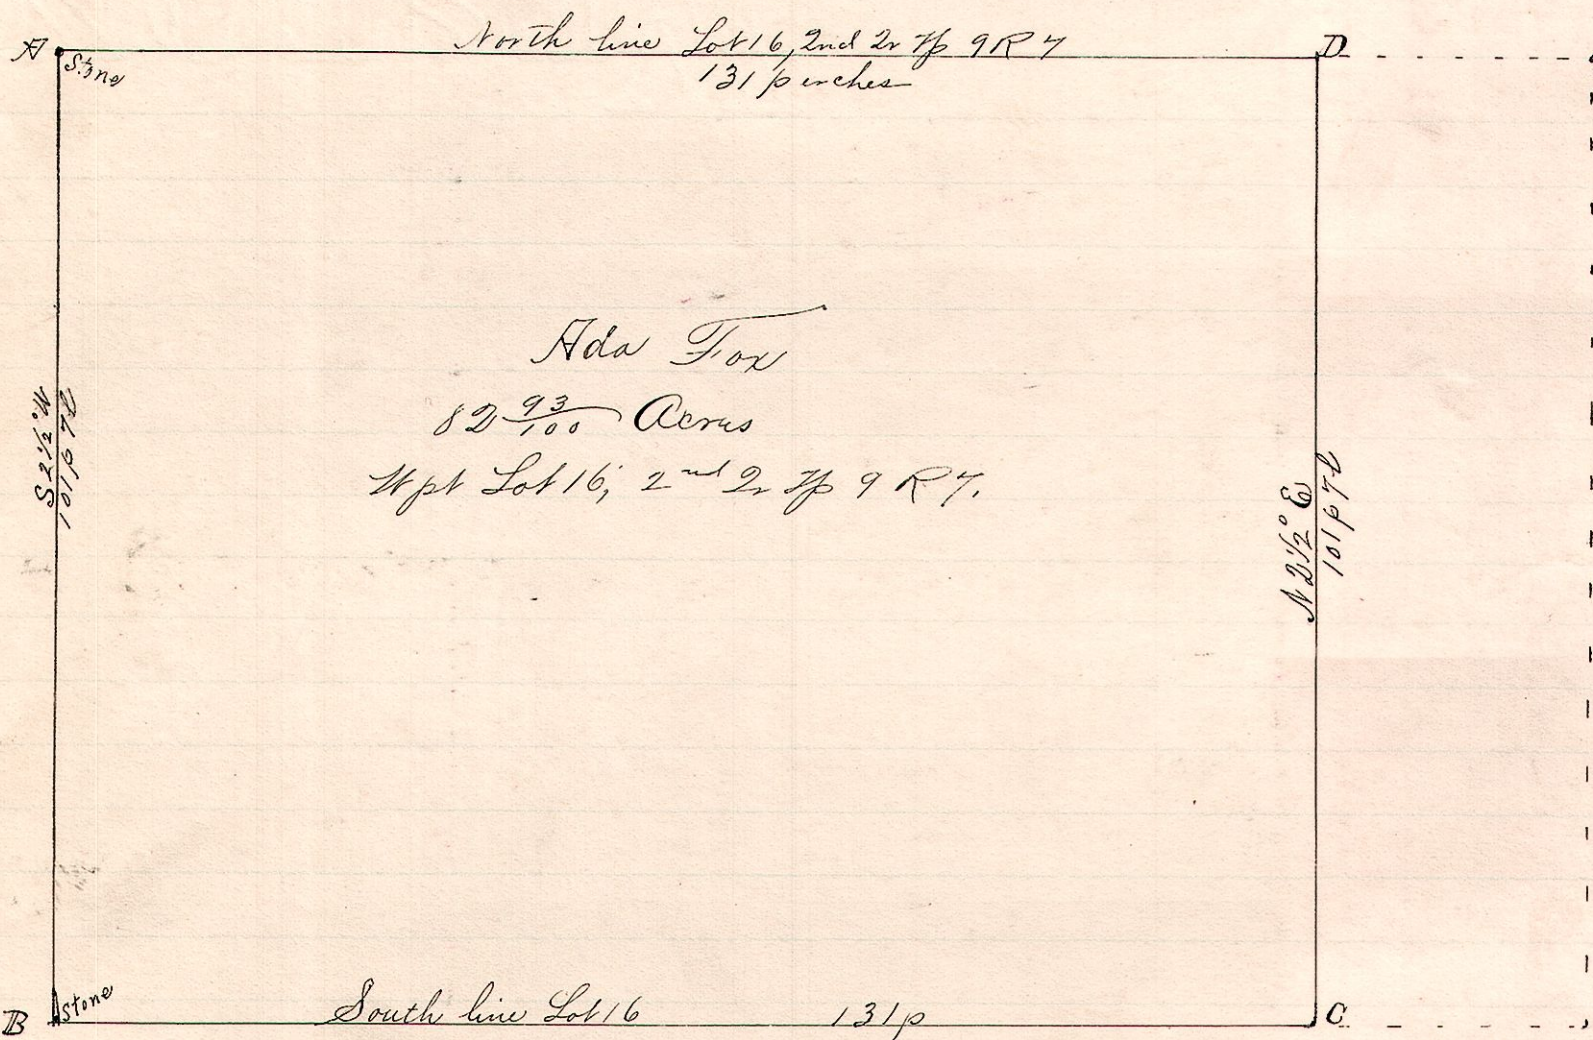 North line Lot 16, 2nd Qr Tp 9 R 7
131 perches
A
Stone
D
Ada Fox
82 93/100 Acres
W pt Lot 16, 2nd Qr Tp 9 R 7.
S 2 1/2° W
101 p 7 l
N 2 1/2° E
101 p 7 l
B
Stone
South line Lot 16 131 p
C